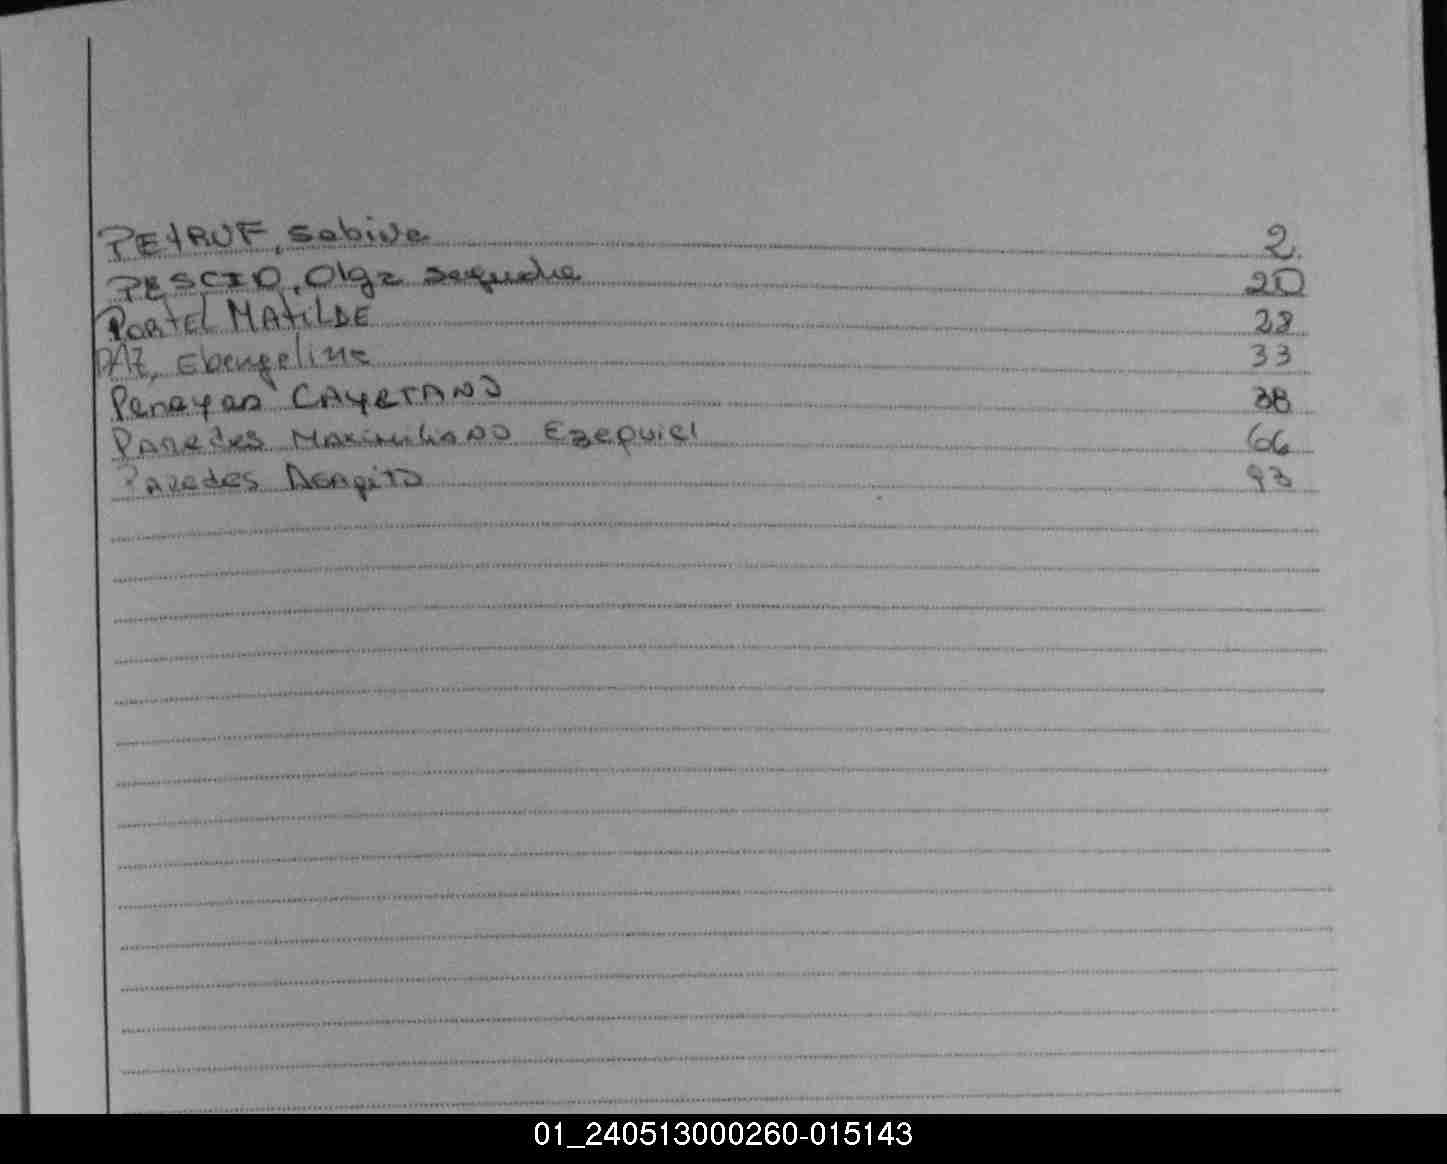 PEtRUF, Sabina 2
PESCIO, Olga 20
PORTEL MATILDE 28
PAZ, Ebengelina 33
Penayan CAYETANO 38
Paredes Maximiliano Ezequiel 66
Paredes Agapito 93
01_240513000260-015143